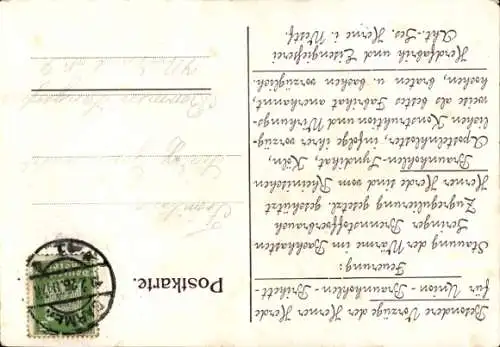 Besondere Vorzüge der Herner Herde
für Union-Braunkohlen-Brikett-
Feuerung:
Stauung der Wärme im Backkasten
Geringer Brennstoffverbrauch
Zugregulierung gesetzl. geschützt
Herner Herde sind vom Rheinischen
Braunkohlen-Syndikat, Köln,
Apostelnkloster, infolge ihrer vorzüg-
lichen Konstruktion und Wirkungs-
weise als bestes Fabrikat anerkannt,
kochen, braten u. backen vorzüglich.
Herdfabrik und Eisengießerei
Akt.-Ges. Herne i. Westf.
Postkarte.
BARMEN